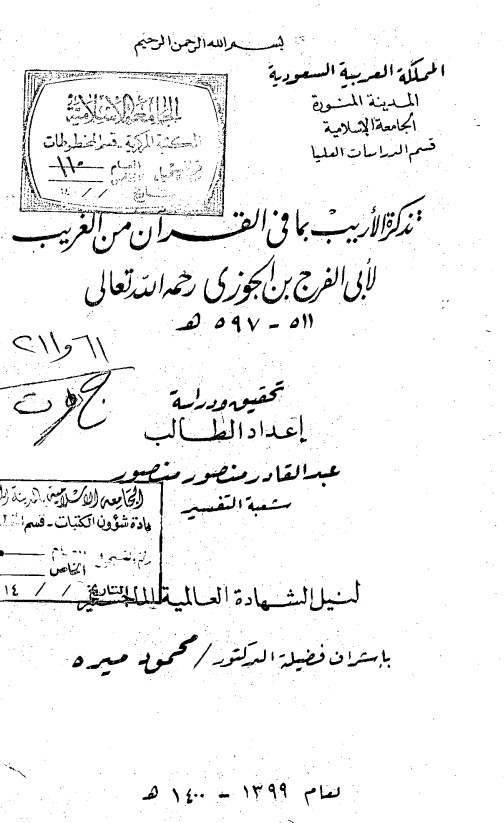 بسم الله الرحمن الرحيم
المملكة العربية السعودية
المدينة المنورة
الجامعة الإسلامية
قسم الدراسات العليا
الجامعة الإسلامية
المكتبة المركزية - قسم المخطوطات
العام
١١٥
تاريخ / / ١٤
تذكرة الأريب بما فى القرآن من الغريب
لأبى الفرج بن الجوزى رحمه الله تعالى
٥١١ - ٥٩٧ هـ
٢١١و٦١
تحقيق ودراسة
إعداد الطالب
عبد القادر منصور منصور
شعبة التفسير
الجامعة الإسلامية بالمدينة
عمادة شؤون المكتبات - قسم
رقم التسجيل العام
الخاص
التاريخ / / ١٤
لنيل الشهادة العالمية الماجستير
بإشراف فضيلة الدكتور / محمود ميره
لعام ١٣٩٩ - ١٤٠٠ هـ